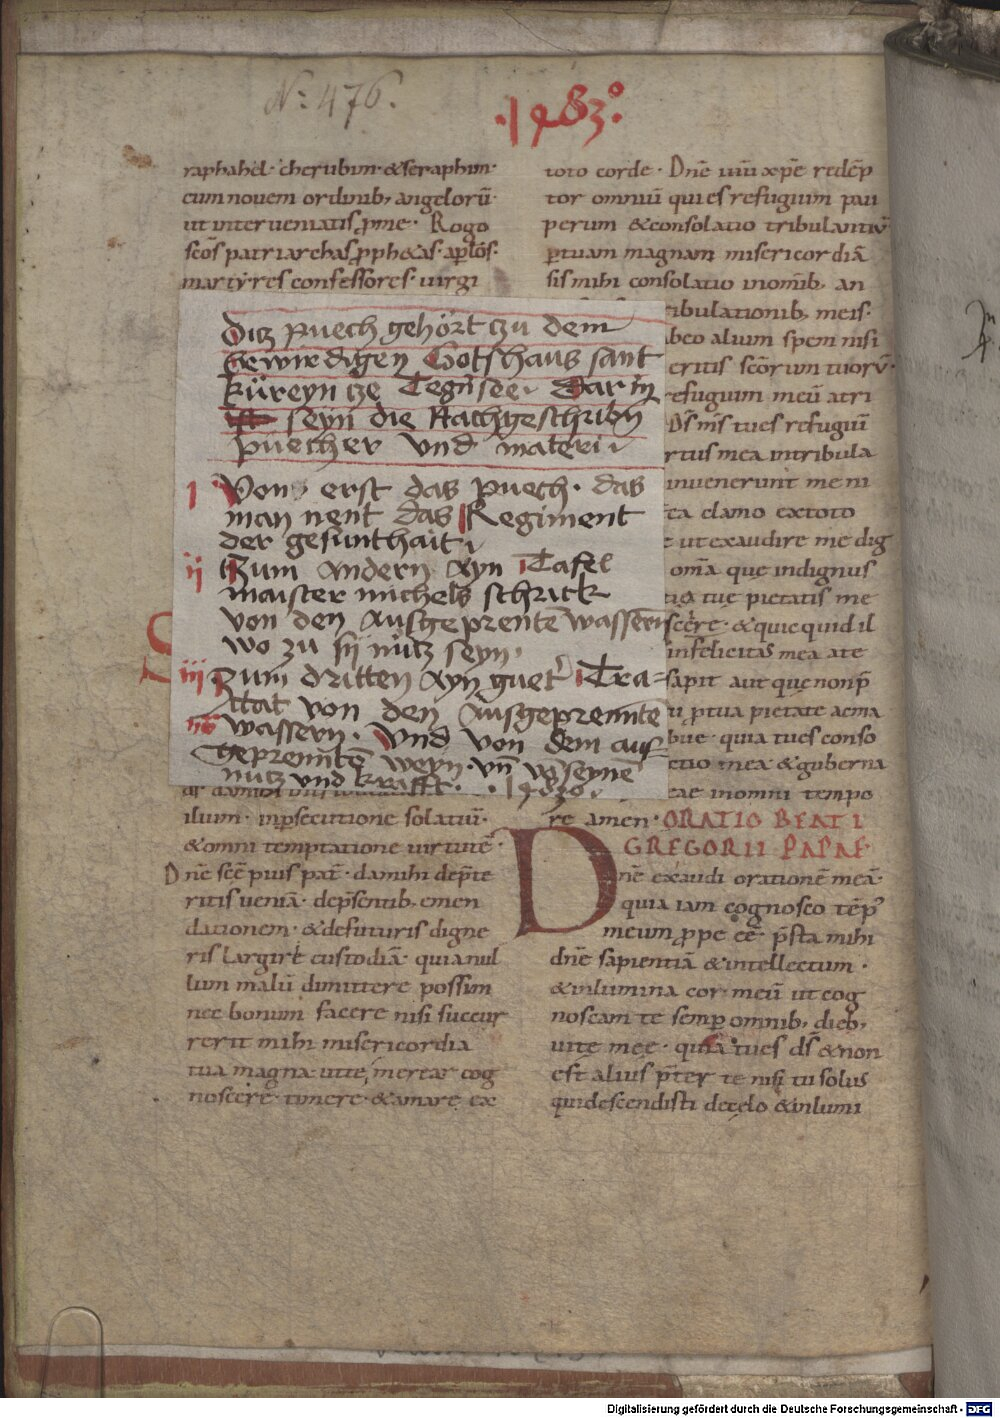 N: 476.
·1483°·
raphahel· cherubim· & seraphim·
cum nouem ordinib, angelorū·
ut interueniatis ꝓ me· Rogo
scōs patriarchas ꝓph&as· aplōs·
martyres confessores· uirgi
Ditz puech gehört tzu dem
Eewirdigen Gotshaus sant
küreyn tze Tegnsee. Dar in
seyn die Nachgeschribn
puecher vnd materi
I Vons erst das puech· das
man nent das Regiment
der gesunthait
ii Tzum Andern Ayn Tafel
maister michels schrick
von den Ausgeprentē wassern
wo zu sy nütz seyn·
iii Zum dritten Ayn guet' Tra=
ttat von den Ausgeprennte
wassern· Vnd von dem aus
Geprenntē weyn· vn̄ vō seynē
nutz vnd krafft· ·1483o·
ilium· in ꝑsecutione solatiū·
& omni temptatione uirtutē·
Dnē scē pius pat̄· da mihi dep̄te
ritis ueniā· dep̄sentib, emen
dationem· & defuturis digne
ris largire custodiā· quia nul
lum malū dimittere possum
nec bonum facere nisi succur
rerit mihi misericordia
tua magna· ut te merear cog
noscere· timere· & amare ex
toto corde· Dnē ihu xp̄e redēp
tor omniū qui es refugium pau
perum & consolatio tribulantiū·
ꝑ tuam magnam misericordiā
sis mihi consolatio in omīb, an
ribulationib, meis·
beo alium spem nisi
eritis scōrum tuorū·
refugium meū atri
Ds ms tu es refugiū
rtus mea in tribula
inuenerunt me ni
ea clamo ex toto
ut exaudire me dig
omā que indignus
tis tue pietatis me
scēre· & quicquid il
infelicitas mea a te
sapit aut que non p̄
u ꝑ tua pietate aerna
bue· quia tu es conso
etio mea & guberna
eae in omni tempo
re amen· ORATIO BEATI
GREGORII PAPAE
Dnē exaudi orationē meā·
quia iam cognosco tēp'
meum ꝓpe eē· p̄sta mihi
dnē sapientiā & intellectum·
& inlumina cor meū ut cog
noscam te semꝑ omnib, dieb,
uite mee· quia tu es ds̄ & non
est alius p̄ter te nisi tu solus
qui descendisti de celo & inlumi
Digitalisierung gefördert durch die Deutsche Forschungsgemeinschaft · DFG